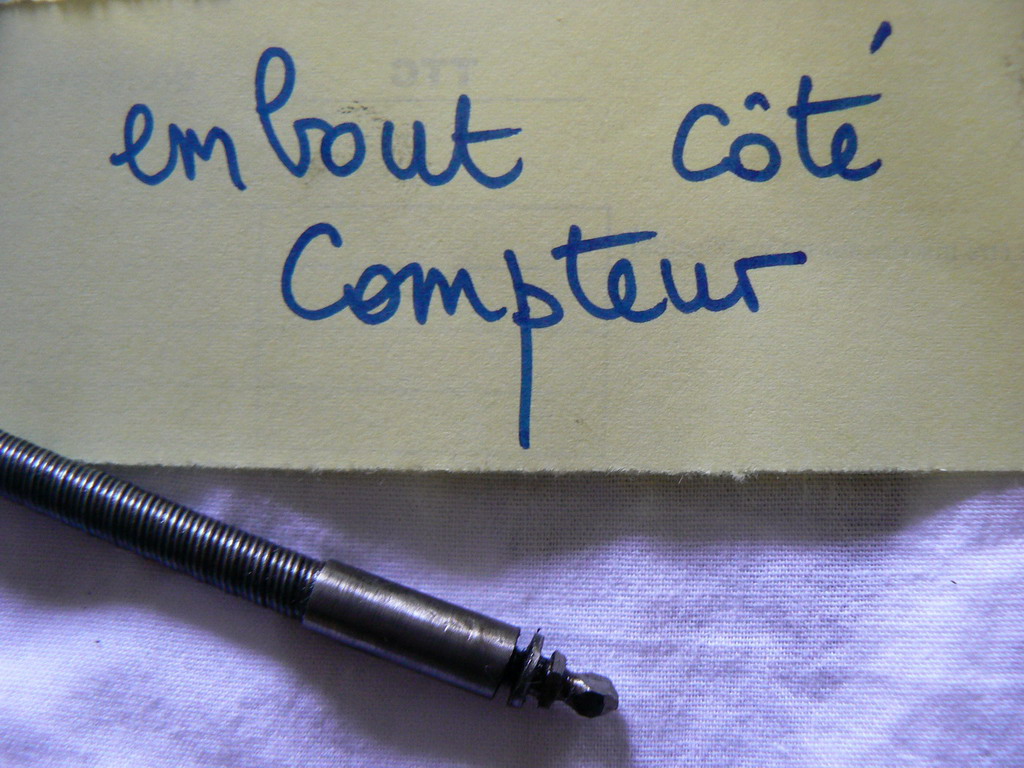 embout côté
Compteur
TTC